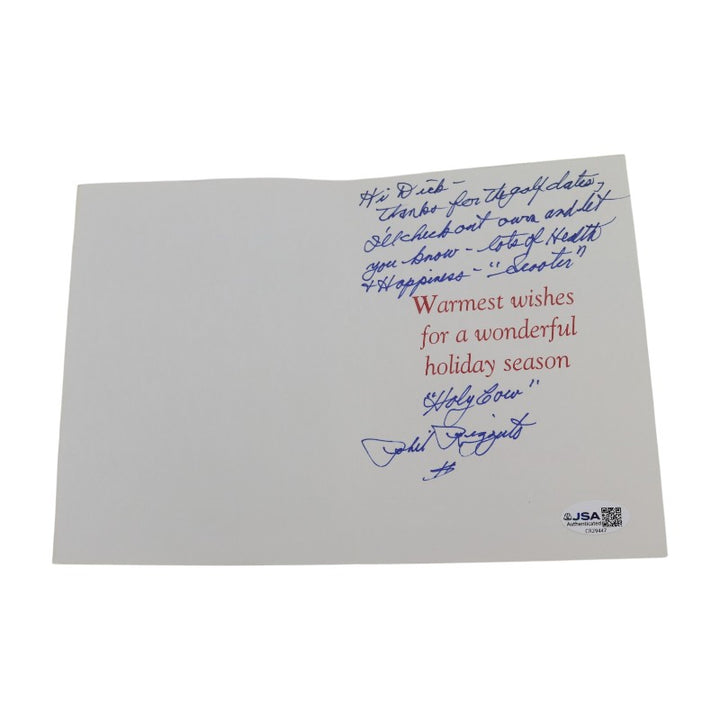 Hi Dick-
Thanks for the golf dates,
I'll check out ours and let
you know - lots of Health
& Happiness - "Scooter"
Warmest wishes
for a wonderful
holiday season
"Holy Cow"
Phil Rizzuto
JSA
Authenticated
CR29447